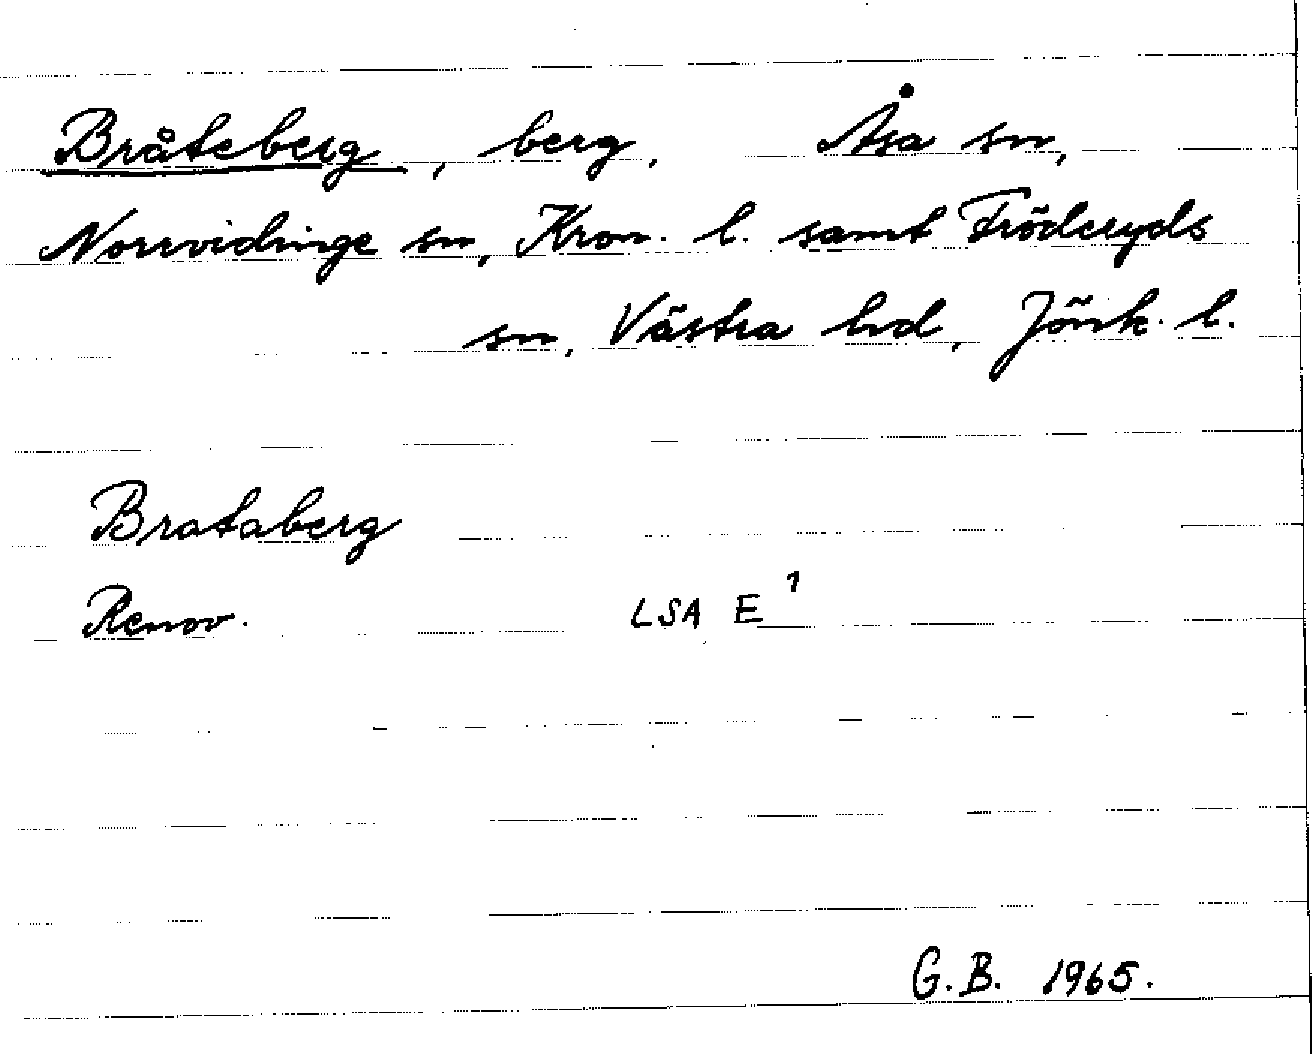 Bråteberg, berg, Åsa sn,
Norrvidinge sn, Kron. l. samt Fröderyds
sn, Västra hd, Jönk. l.
Brataberg
Renov. LSA E¹
G.B. 1965.